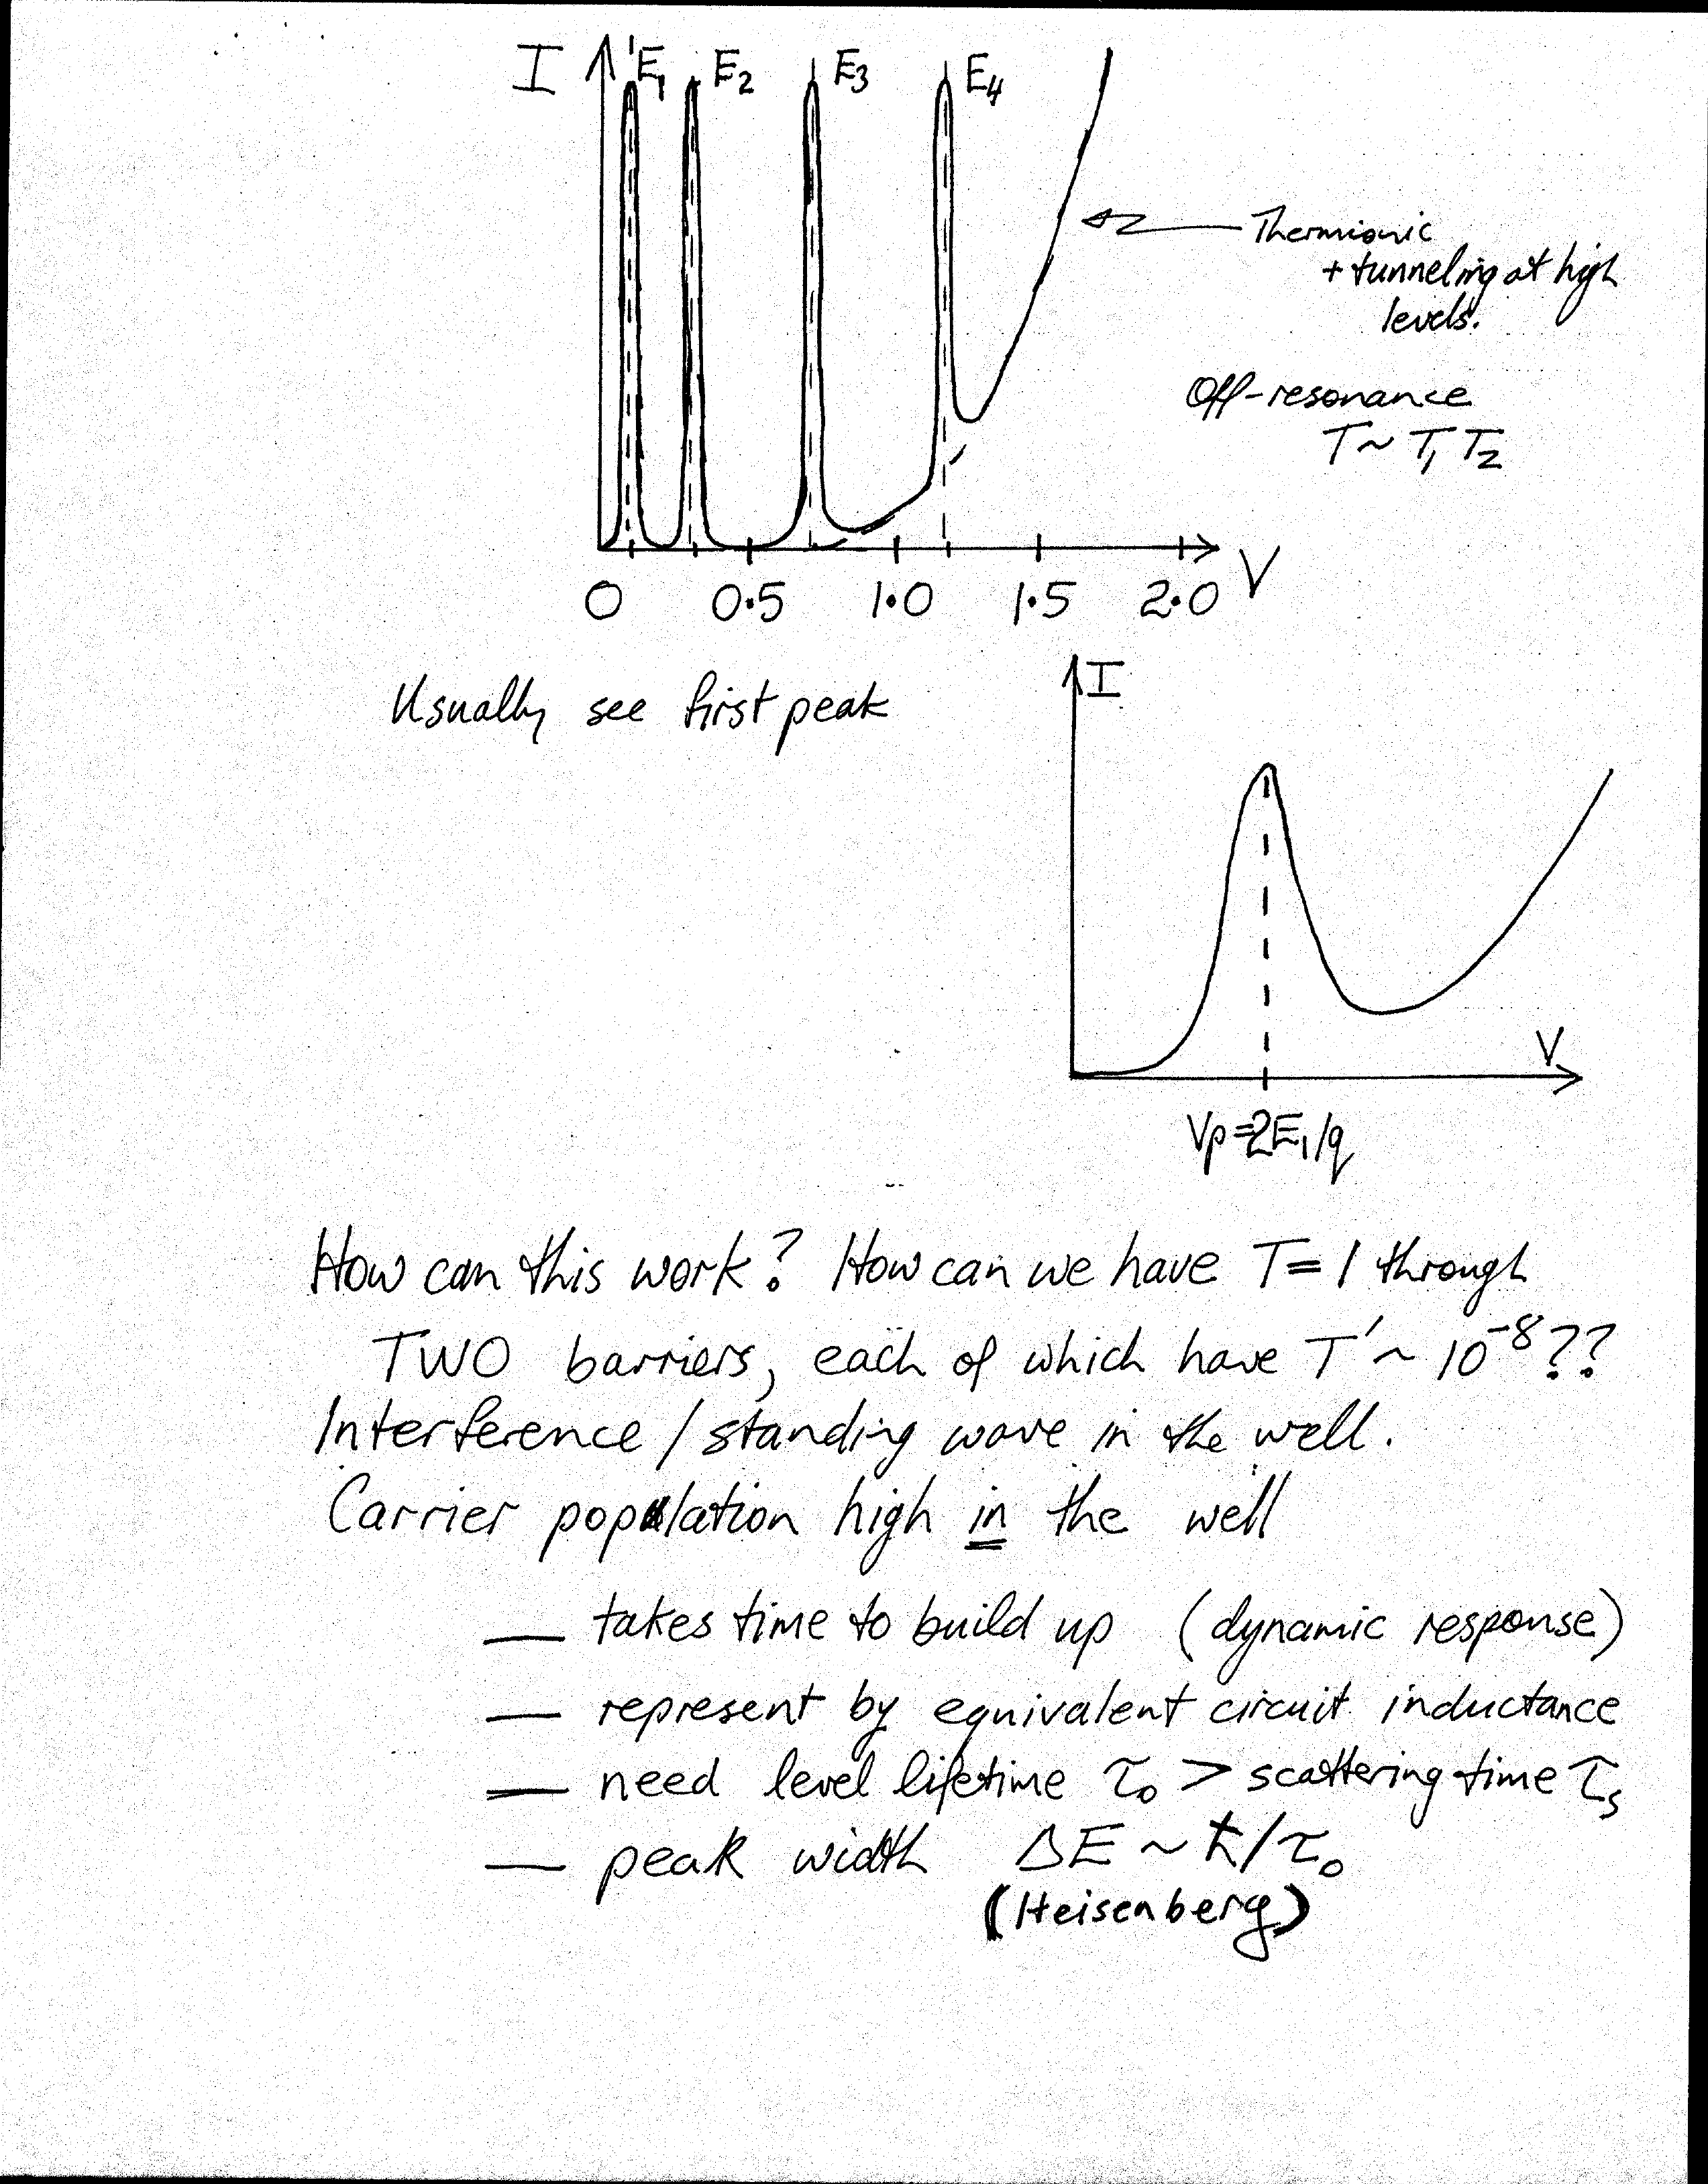 I E₁ E₂ E₃ E₄
Thermionic
+ tunneling at high
levels.
Off-resonance
T ~ T₁ T₂
0 0.5 1.0 1.5 2.0 V
I
Usually see first peak
V
Vp=2E₁/q
How can this work? How can we have T=1 through
TWO barriers, each of which have T′ ~ 10⁻⁸??
Interference / standing wave in the well.
Carrier population high in the well
— takes time to build up (dynamic response)
— represent by equivalent circuit inductance
— need level lifetime τ₀ > scattering time τₛ
— peak width ΔE ~ ħ/τ₀
(Heisenberg)